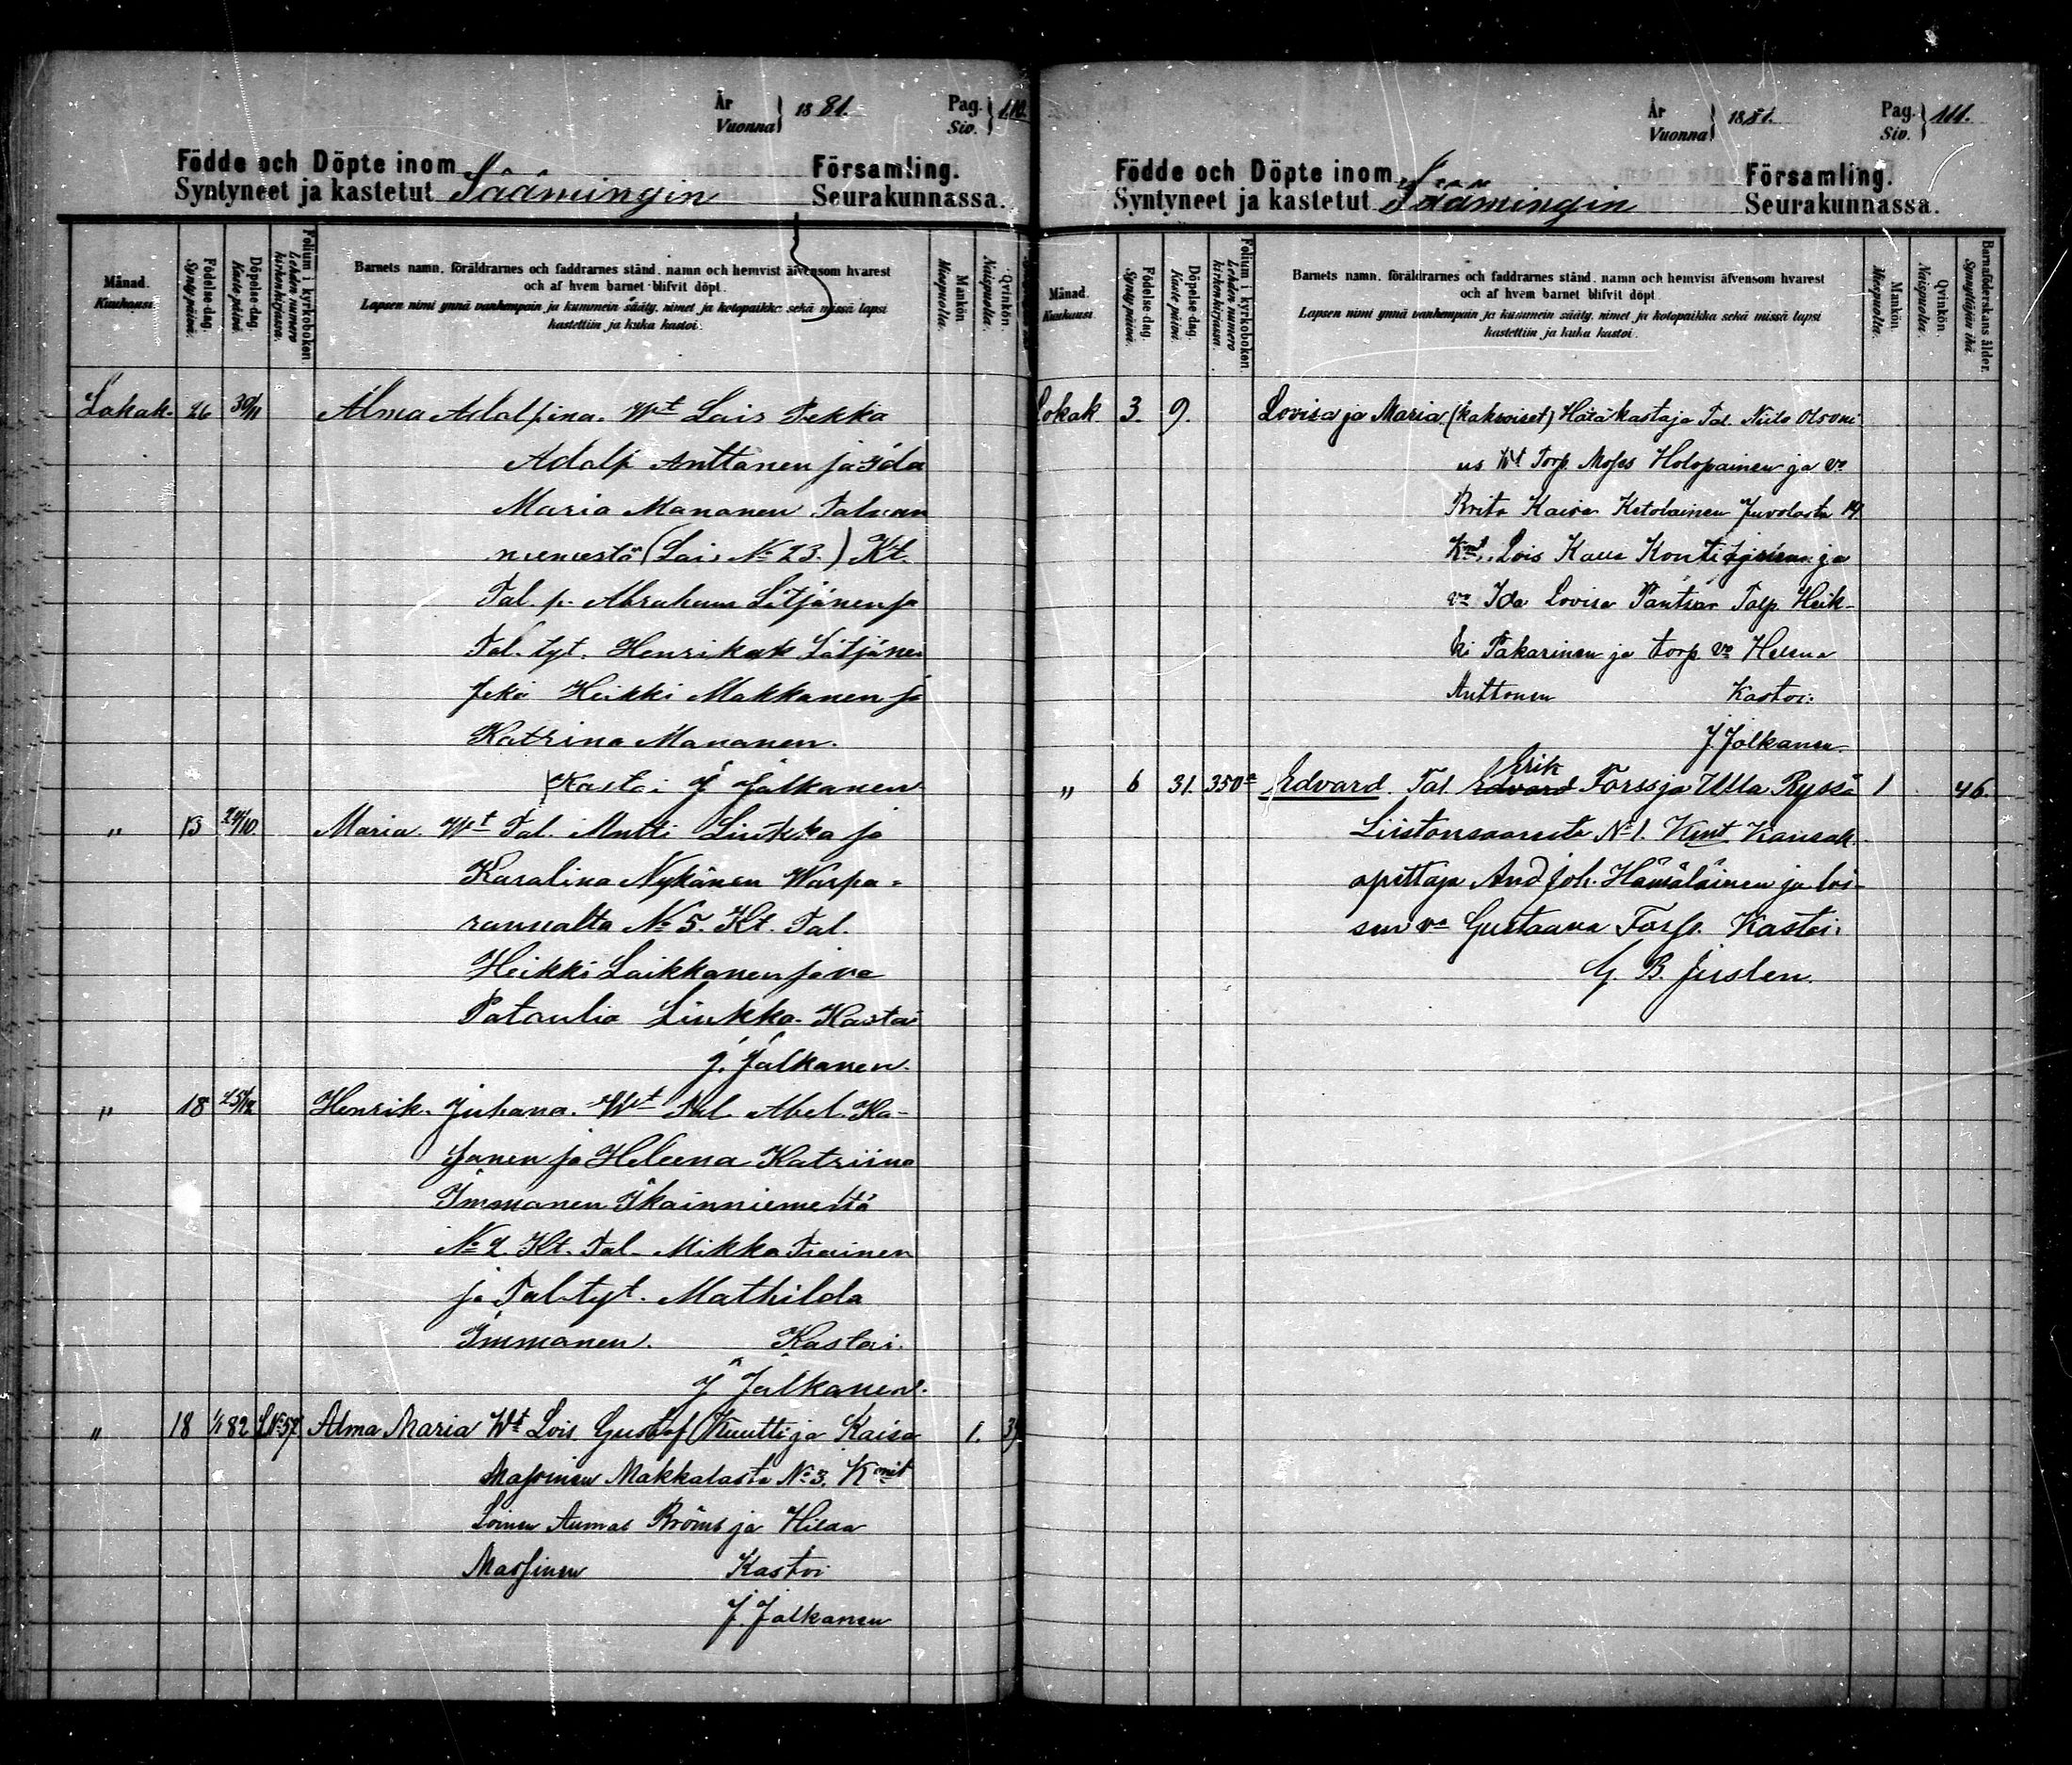 År
Vuonna } 1881.
Pag.
Siv. } 110.
Födde och Döpte inom
Syntyneet ja kastetut Säämingin
Församling.
Seurakunnassa.
Månad.
Kuukausi
Födelse-dag.
Syntypäivä.
Döpelse-dag.
Kaste päivä.
Folium i kyrkoboken.
Lehden numero
kirkonkirjassa.
Barnets namn, föräldrarnes och faddrarnes stånd, namn och hemvist äfvensom hvarest
och af hvem barnet blifvit döpt.
Lapsen nimi ynnä vanhempain ja kummein sääty, nimet ja kotopaikka sekä missä lapsi
kastettiin ja kuka kastoi.
Mankön.
Miespuolia.
Qvinkön.
Naispuolia.
Lokak. 26 30/11 Alma Adolfina. Wt Lois Pekka
Adolf Anttonen ja Ida
Maria Mananen
niemestä (Lois No 23.) Kt.
Tal. p. Abraham Lötjönen ja
Tal. tyt. Henrikah Lötjönen
sekä Heikki Makkonen ja
Katrina Mananen.
Kastoi J Jalkanen
" 13 24/10 Maria. Wt Tal. Antti Liukko ja
Karolina Nykänen Warpa-
rannalta No 5. Kt. Tal.
Heikki Laikkanen ja va
Liukko. Kastoi
J. Jalkanen.
" 18 25/12 Henrik. Juhana. Wt Tal. Abel. Ko-
sonen ja Heleena Katriina
Immonen Ikoinniemestä
No 2. Kt. Tal. Mikko Tiainen
ja Tal. tyt. Mathilda
Immonen. Kastoi.
J Jalkanen.
" 18 1/1 82 L No 57 Alma Maria Wt Lois Gustaf Kuutti ja Kaisa
Massinen Makkolasta No 3. Kmit
Loinen Aumas Bröms ja Hilda
Massinen Kastoi
J. Jalkanen
1. 39
År
Vuonna } 1881.
Pag.
Siv. } 111.
Födde och Döpte inom
Syntyneet ja kastetut Säämingin
Församling.
Seurakunnassa.
Månad.
Kuukausi
Födelse-dag.
Syntypäivä.
Döpelse-dag.
Kaste päivä.
Folium i kyrkoboken
Lehden numero
kirkonkirjassa.
Barnets namn, föräldrarnes och faddrarnes stånd, namn och hemvist äfvensom hvarest
och af hvem barnet blifvit döpt.
Lapsen nimi ynnä vanhempain ja kummein sääty, nimet ja kotopaikka sekä missä lapsi
kastettiin ja kuka kastoi.
Mankön.
Miespuolia.
Qvinkön.
Naispuolia.
Barnaföderskans ålder.
Synnyttäjän ikä.
Lokak 3. 9. Lovisa ja Maria (kaksoiset) Hätäkastaja Tal. Niilo Olsoni
us Wt Torp. Moses Holopainen ja vo
Brita Kaisa Ketolainen Juvolasta 14.
Kmt. Lois Kalle ja
vo Ida Lovisa Pantsar Talp. Heik-
ki Pakarinen ja torp. vo Helena
Anttonen Kastoi:
J. Jalkanen.
" 6 31. 350a Edvard. Tal. Edvard Erik Forss ja Ulla Ryssä 1 46.
Liistonsaaresta No 1. Kmt Kansak.
opettaja And Joh. Hämäläinen ja loi-
sen vo Gustaava Forss. Kastoi.
G. B. Juslen.